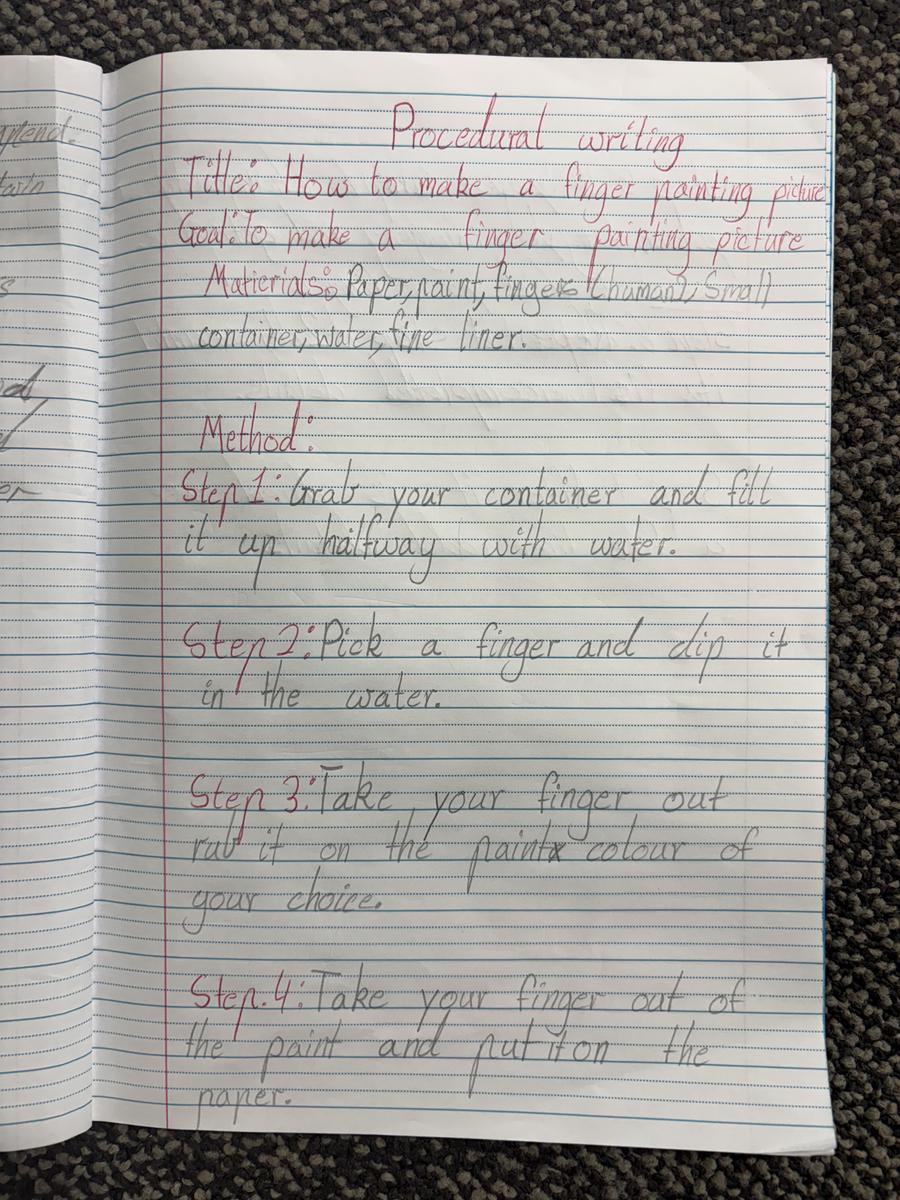 Procedural writing
Title: How to make a finger painting picture
Goal: To make a finger painting picture
Maticrials: Paper, paint, fingers (human), Small
container, water, fine liner.
Method:
Step 1: Grab your container and fill
it up halfway with water.
Step 2: Pick a finger and dip it
in the water.
Step 3: Take your finger out
rub it on the paint colour of
your choice.
Step.4: Take your finger out of
the paint and put it on the
paper.